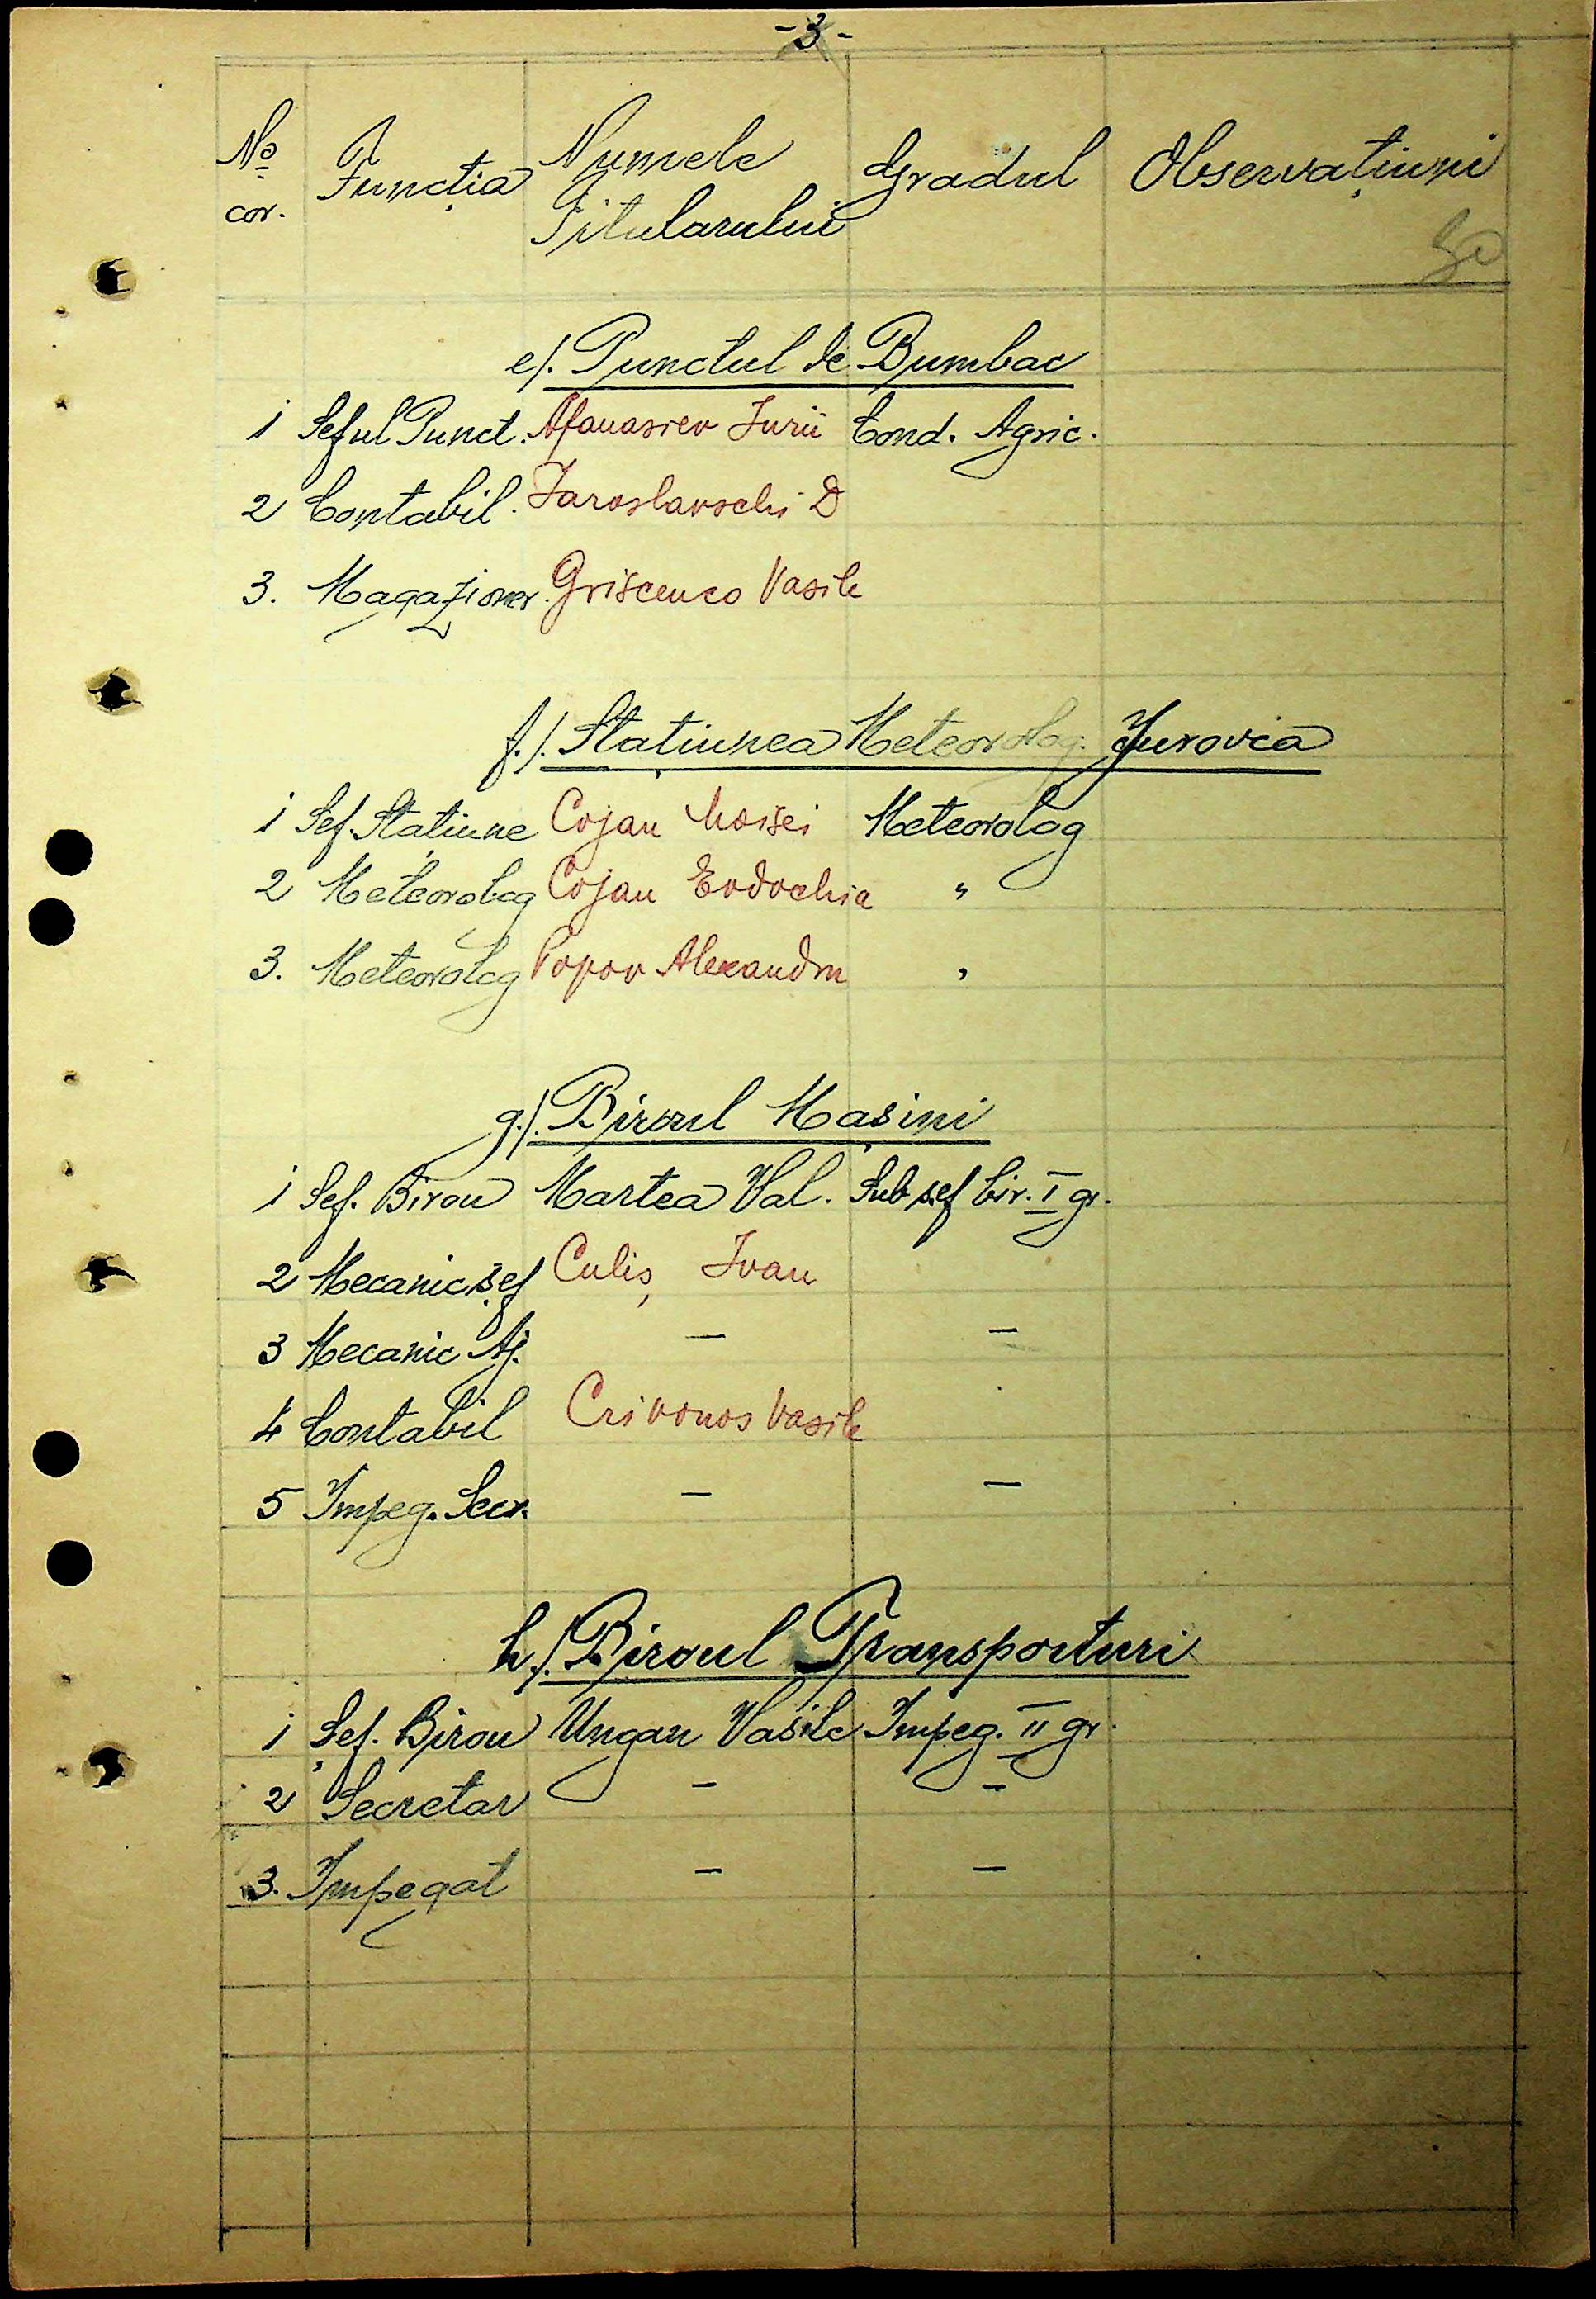 -3-
No cor. Funcția Numele Titularului Gradul Observațiuni
e/. Punctul de Bumbac
1 Seful Punct. Afanasiev Iurii Cond. Agric.
2 Contabil. Iaroslavschi D
3. Magazioner. Grişcenco Vasile
f./. Stațiunea Meteorolog. Jurovca
1 Sef Stațiune Cojan Moisei Meteorolog
2 Meteorolog Cojan Evdochia "
3. Meteorolog Popov Alexandru "
g./. Biroul Mașini
1 Sef. Birou Martea Val. Sub șef bir. I gr.
2 Mecanic șef Culiș Ivan
3 Mecanic Aj. — —
4 Contabil Crivonos Vasile
5 Impeg. Secr. — —
h./. Biroul Transporturi
1 Șef. Birou Ungan Vasile Impeg. II gr.
2 Secretar — —
3. Impegat — —